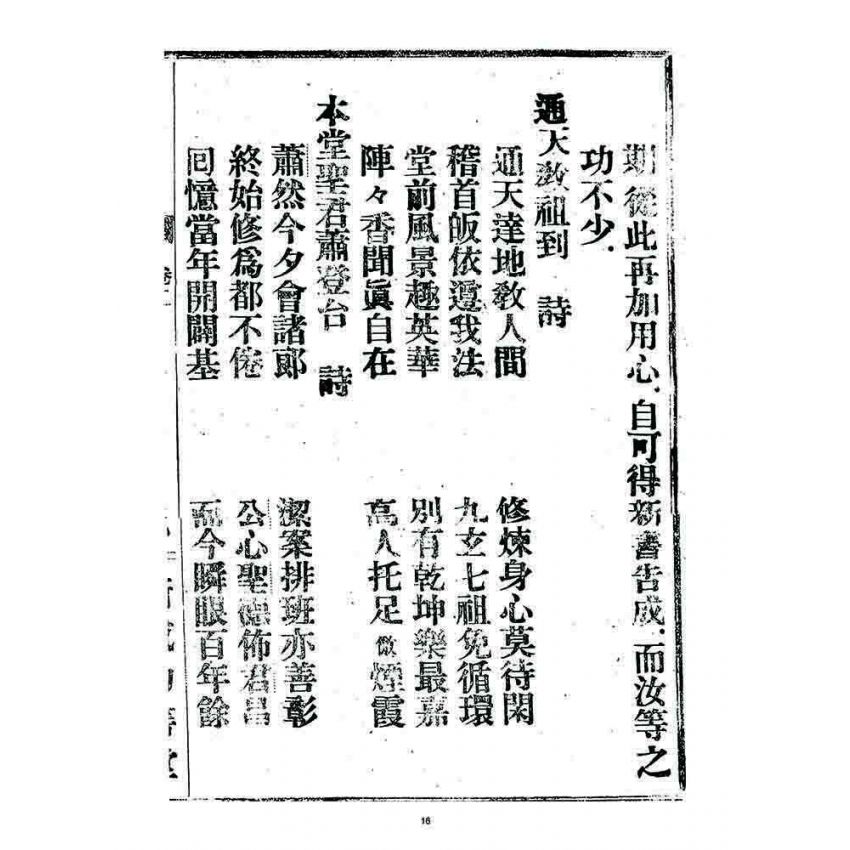 期從此再加用心、自可得新書告成、而汝等之
功不少、
通天教祖到　詩
通天達地教人間　修煉身心莫待閑
稽首皈依遵我法　九玄七祖免循環
堂前風景趣英華　別有乾坤樂最嘉
陣々香聞眞自在　高人托足傲煙霞
本堂聖君蕭登台　詩
蕭然今夕會諸郎　潔案排班亦善彰
終始修爲都不倦　公心聖德佈君昌
回憶當年開闢基　而今瞬眼百年餘
卷二
16